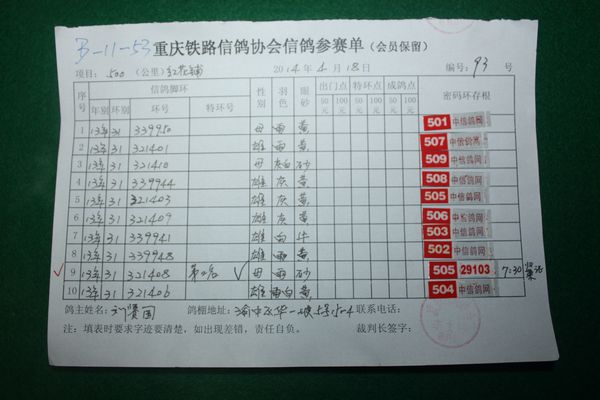 B-11-53 重庆铁路信鸽协会信鸽参赛单（会员保留）
项目：500（公里）红花铺 2014年4月18日 编号：93号
序号 信鸽脚环 性别 羽色 眼砂 出门点 特环点 成鸽点 密码环存根
年别 环别 环号 特环号 50元 100元 50元 100元 50元 100元
1 13年 31 339950 母 雨 黄 501 中信鸽网
2 13年 31 321401 雄 雨 黄 507 中信鸽网
3 13年 31 321410 母 灰白 砂 509 中信鸽网
4 13年 31 339944 雄 灰 黄 508 中信鸽网
5 13年 31 321403 雄 灰 黄 505 中信鸽网
6 13年 31 321409 雄 灰 黄 506 中信鸽网
7 13年 31 339941 雄 白 牛 503 中信鸽网
8 13年 31 339948 雄 雨 黄 502 中信鸽网
9 13年 31 321408 母 雨 砂 505 29103 7:30
10 13年 31 321406 雄 雨白 黄 504 中信鸽网
鸽主姓名：刘贤国 鸽棚地址：渝中区华一 联系电话：
注：填表时要求字迹要清楚，如出现差错，责任自负。 裁判长签字：